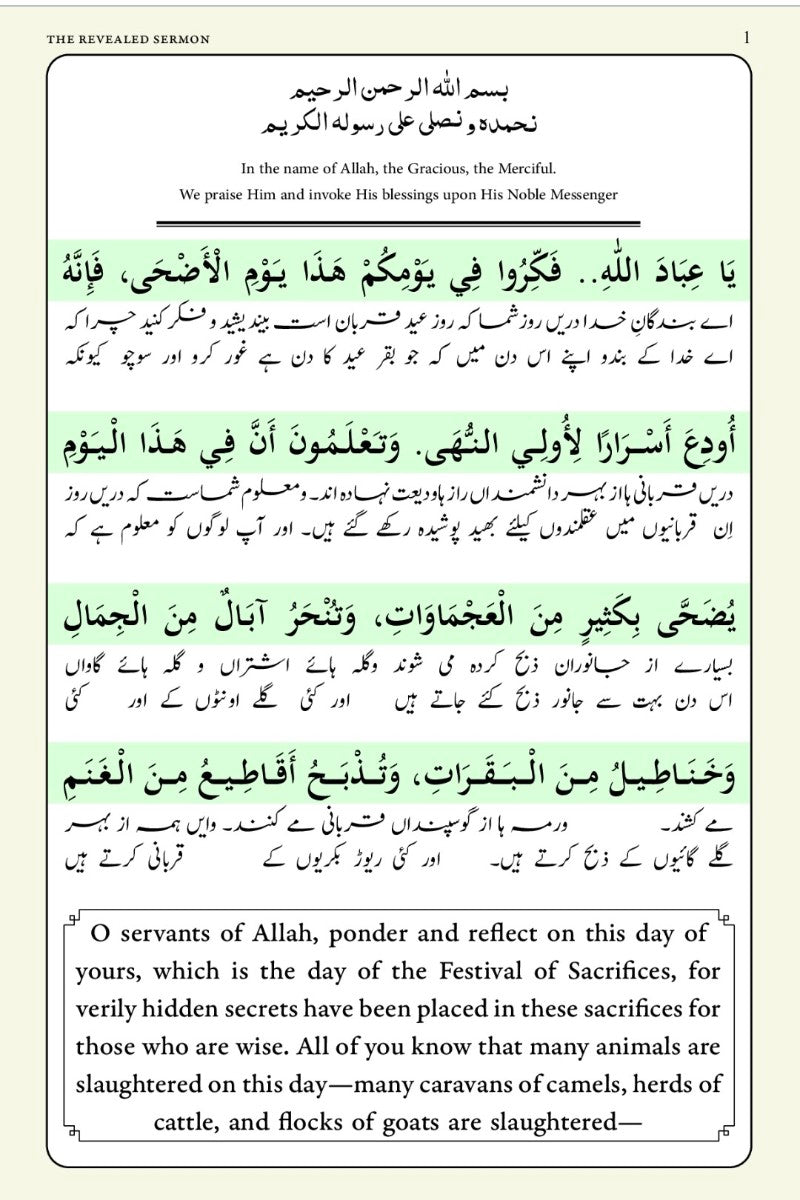 THE REVEALED SERMON 1
بسم الله الرحمن الرحيم
نحمده و نصلى على رسوله الكريم
In the name of Allah, the Gracious, the Merciful.
We praise Him and invoke His blessings upon His Noble Messenger
يَا عِبَادَ اللّٰهِ.. فَكِّرُوا فِي يَوْمِكُمْ هَذَا يَوْمِ الْأَضْحَى، فَإِنَّهُ
اے بندگانِ خدا دریں روز شما کہ روز عید قربان است بیندیشید و فکر کنید چرا کہ
اے خدا کے بندو اپنے اس دن میں کہ جو بقر عید کا دن ہے غور کرو اور سوچو کیونکہ
أُودِعَ أَسْرَارًا لِأُولِي النُّهَى. وَتَعْلَمُونَ أَنَّ فِي هَذَا الْيَوْمِ
دریں قربانی ہا از بہر دانشمنداں راز ہا ودیعت نہادہ اند۔ ومعلوم شماست کہ دریں روز
اِن قربانیوں میں عقلمندوں کیلئے بھید پوشیدہ رکھے گئے ہیں۔ اور آپ لوگوں کو معلوم ہے کہ
يُضَحَّى بِكَثِيرٍ مِنَ الْعَجْمَاوَاتِ، وَتُنْحَرُ آبَالٌ مِنَ الْجِمَالِ
بسیارے از جانوران ذبح کردہ می شوند وگلہ ہائے اشتراں و گلہ ہائے گاواں
اس دن بہت سے جانور ذبح کئے جاتے ہیں اور کئی گلے اونٹوں کے اور کئی
وَخَنَاطِيلُ مِنَ الْبَقَرَاتِ، وَتُذْبَحُ أَقَاطِيعُ مِنَ الْغَنَمِ
مے کشند۔ ورمہ ہا از گوسپنداں قربانی مے کنند۔ وایں ہمہ از بہر
گلے گائیوں کے ذبح کرتے ہیں۔ اور کئی ریوڑ بکریوں کے قربانی کرتے ہیں
O servants of Allah, ponder and reflect on this day of
yours, which is the day of the Festival of Sacrifices, for
verily hidden secrets have been placed in these sacrifices for
those who are wise. All of you know that many animals are
slaughtered on this day—many caravans of camels, herds of
cattle, and flocks of goats are slaughtered—